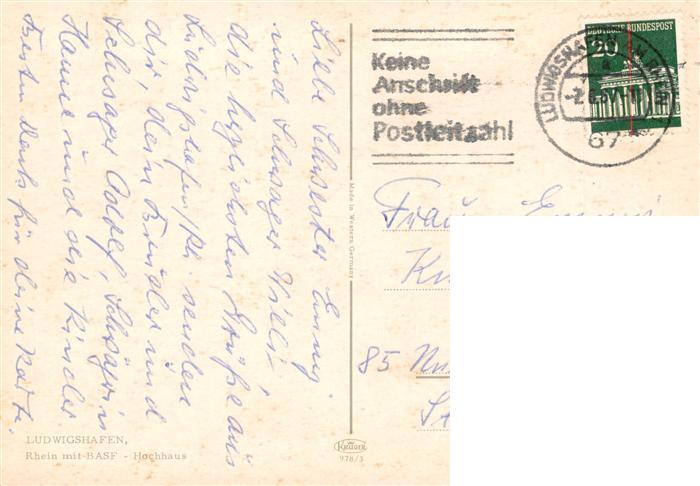 Liebe Schwester Emmy.
und Schwager Willi
die herzlichsten Grüße aus
Ludwigshafen/Rh. senden
dir, dein Bruder und
Schwager Adolf, Schwägerin
Hanne und die Kinder
Besten Dank für deine Karte.
LUDWIGSHAFEN,
Rhein mit BASF - Hochhaus
Made in Western Germany
KRÜGER
978/3
Keine
Anschrift
ohne
Postleitzahl
DEUTSCHE BUNDESPOST
20
LUDWIGSHAFEN AM RHEIN
67
Frau
85